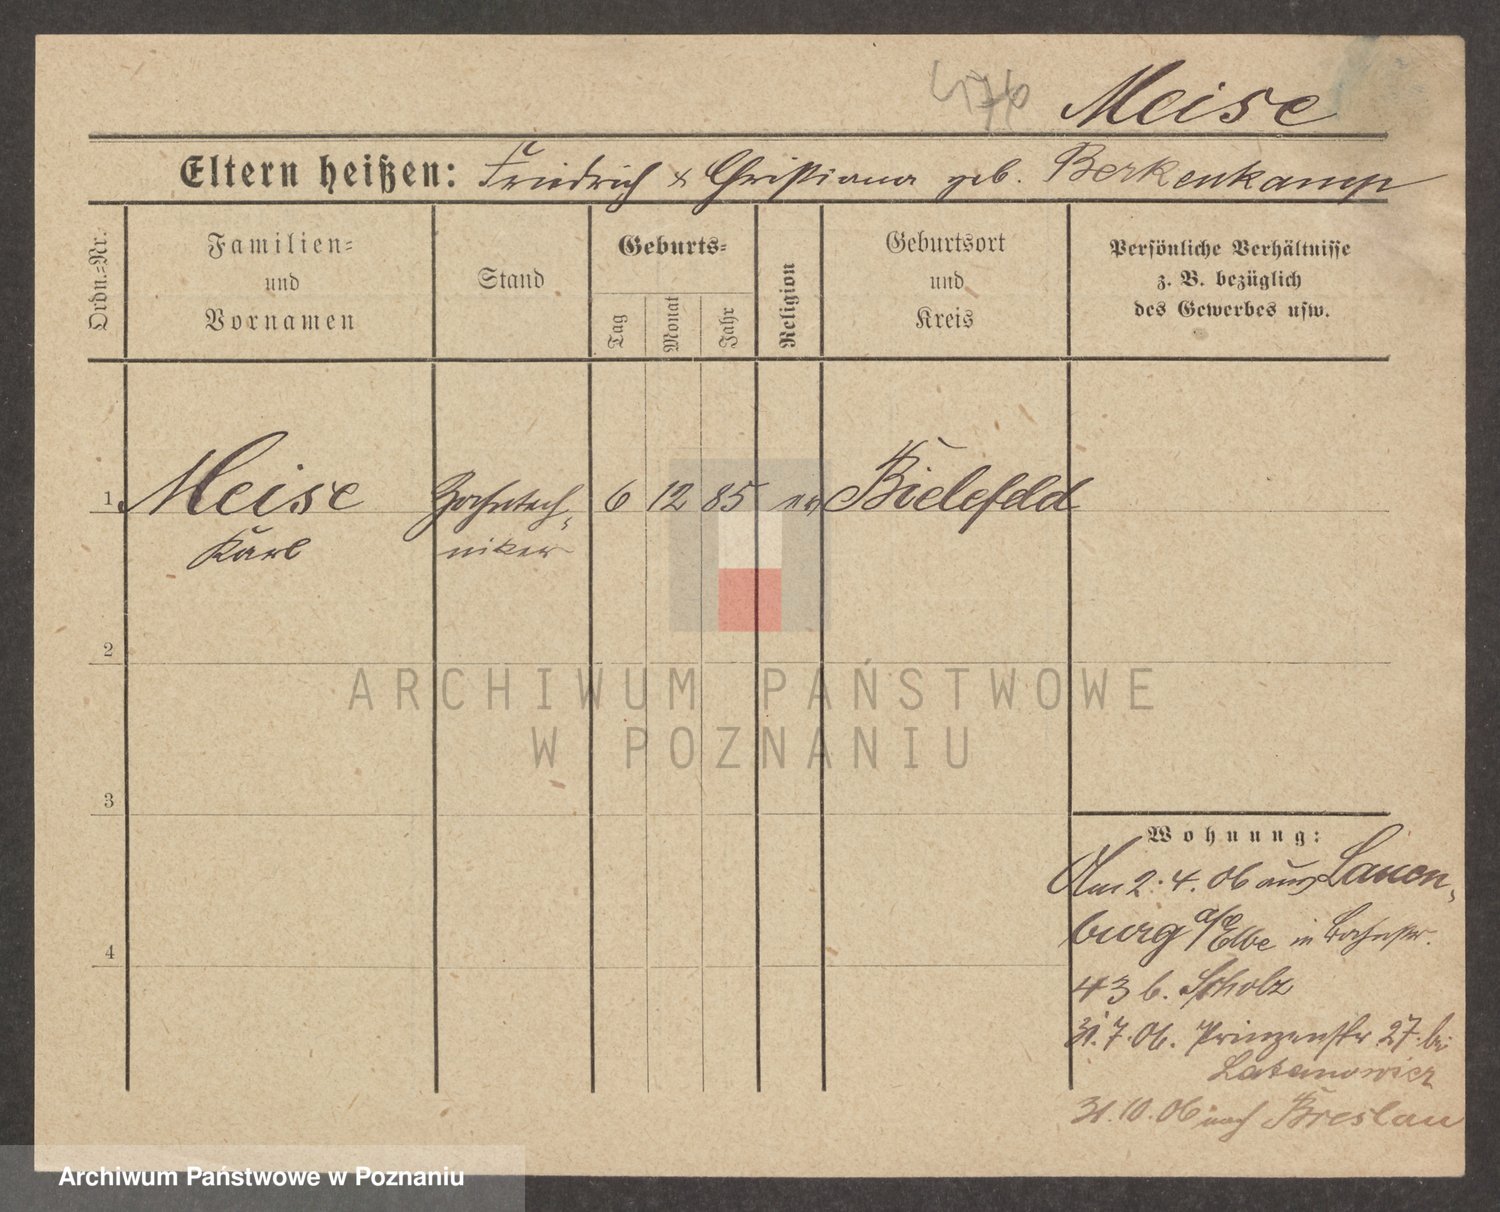 476 Meise
Eltern heißen: Friedrich & Christiana geb. Berkenkamp
Ordn.-Nr.
Familien-
und
Vornamen
Stand
Geburts-
Tag
Monat
Jahr
Religion
Geburtsort
und
Kreis
Persönliche Verhältnisse
z. B. bezüglich
des Gewerbes usw.
1 Meise Zahntech- 6 12 85 ev Bielefeld
Karl niker
2
3
4
Wohnung:
Am 2.4.06 aus Lauen-
burg a/Elbe in Bahnstr.
43 b. Scholz
31.7.06. Prinzenstr 27. bei
31.10.06 nach Breslau
ARCHIWUM PAŃSTWOWE
W POZNANIU
Archiwum Państwowe w Poznaniu